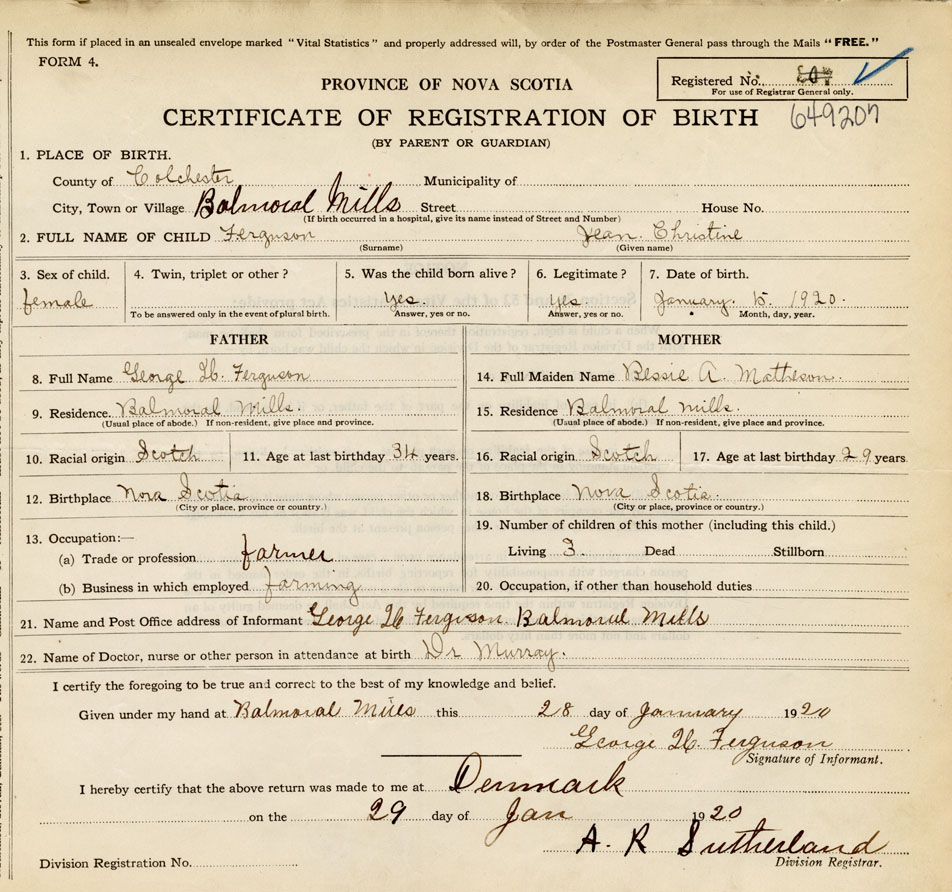 This form if placed in an unsealed envelope marked "Vital Statistics" and properly addressed will, by order of the Postmaster General pass through the Mails "FREE."
FORM 4.
Registered No.
For use of Registrar General only.
PROVINCE OF NOVA SCOTIA
CERTIFICATE OF REGISTRATION OF BIRTH 649207
(BY PARENT OR GUARDIAN)
1. PLACE OF BIRTH.
County of Colchester Municipality of
City, Town or Village Balmoral Mills Street House No.
(If birth occurred in a hospital, give its name instead of Street and Number)
2. FULL NAME OF CHILD Ferguson Jean Christine
(Surname) (Given name)
3. Sex of child. 4. Twin, triplet or other? 5. Was the child born alive? 6. Legitimate? 7. Date of birth.
female yes. yes January. 15. 1920.
To be answered only in the event of plural birth. Answer, yes or no. Answer, yes or no. Month, day, year.
FATHER MOTHER
8. Full Name George H. Ferguson 14. Full Maiden Name Bessie A. Matheson.
9. Residence. Balmoral Mills. 15. Residence Balmoral mills.
(Usual place of abode.) If non-resident, give place and province. (Usual place of abode.) If non-resident, give place and province.
10. Racial origin Scotch 11. Age at last birthday 34 years. 16. Racial origin Scotch 17. Age at last birthday 29 years.
12. Birthplace Nova Scotia 18. Birthplace Nova Scotia.
(City or place, province or country.) (City or place, province or country.)
13. Occupation:— 19. Number of children of this mother (including this child.)
(a) Trade or profession farmer Living 3. Dead Stillborn
(b) Business in which employed farming 20. Occupation, if other than household duties
21. Name and Post Office address of Informant George H Ferguson Balmoral Mills
22. Name of Doctor, nurse or other person in attendance at birth Dr Murray.
I certify the foregoing to be true and correct to the best of my knowledge and belief.
Given under my hand at Balmoral Mills this 28 day of January 1920
George H. Ferguson
Signature of Informant.
I hereby certify that the above return was made to me at Denmark
on the 29 day of Jan 1920
A. R Sutherland
Division Registration No. Division Registrar.